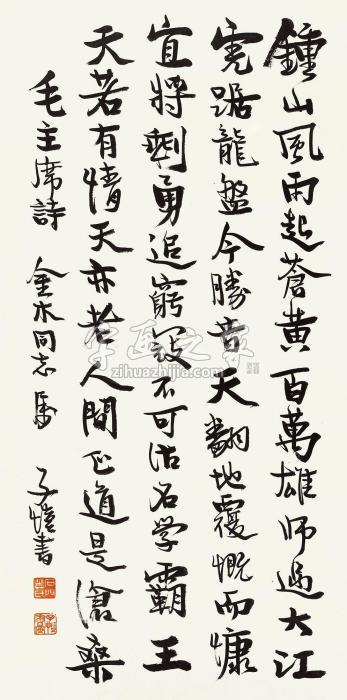 鍾山風雨起蒼黃百萬雄師過大江
虎踞龍盤今勝昔天翻地覆慨而慷
宜將剩勇追窮寇不可沽名学霸王
天若有情天亦老人間正道是滄桑
毛主席詩 金木同志属 子愷書
字画之家
zihuazhijia.com